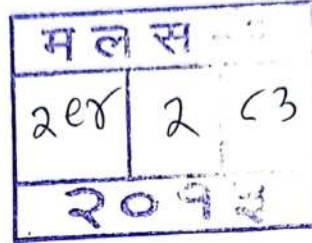 म ल स
२९४ २ ८३
२०१३